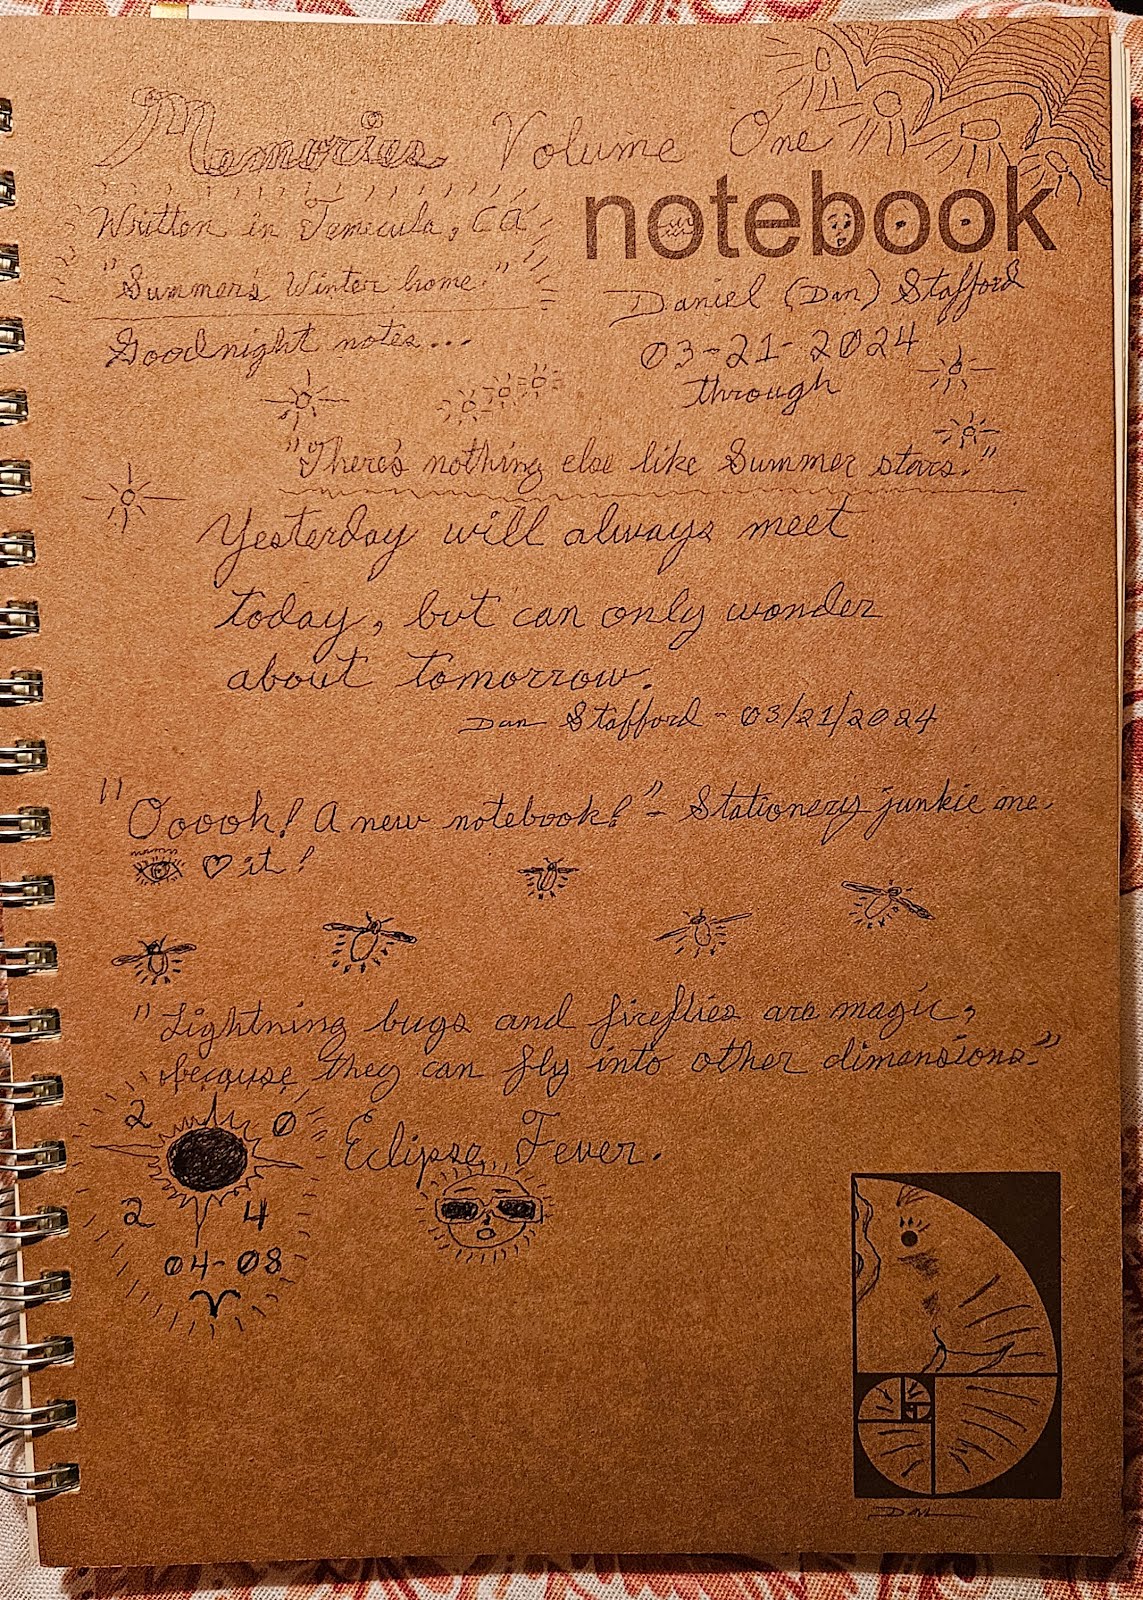 Memories Volume One
notebook
Written in Temecula, CA
"Summer's Winter home."
Daniel (Dan) Stafford
Goodnight notes...
03-21-2024
through
"There's nothing else like Summer stars."
Yesterday will always meet
today, but can only wonder
about tomorrow.
Dan Stafford - 03/21/2024
"Ooooh! A new notebook!" - Stationery junkie me.
it!
"Lightning bugs and fireflies are magic,
because they can fly into other dimensions."
2 0
Eclipse Fever.
2 4
04-08
Dan